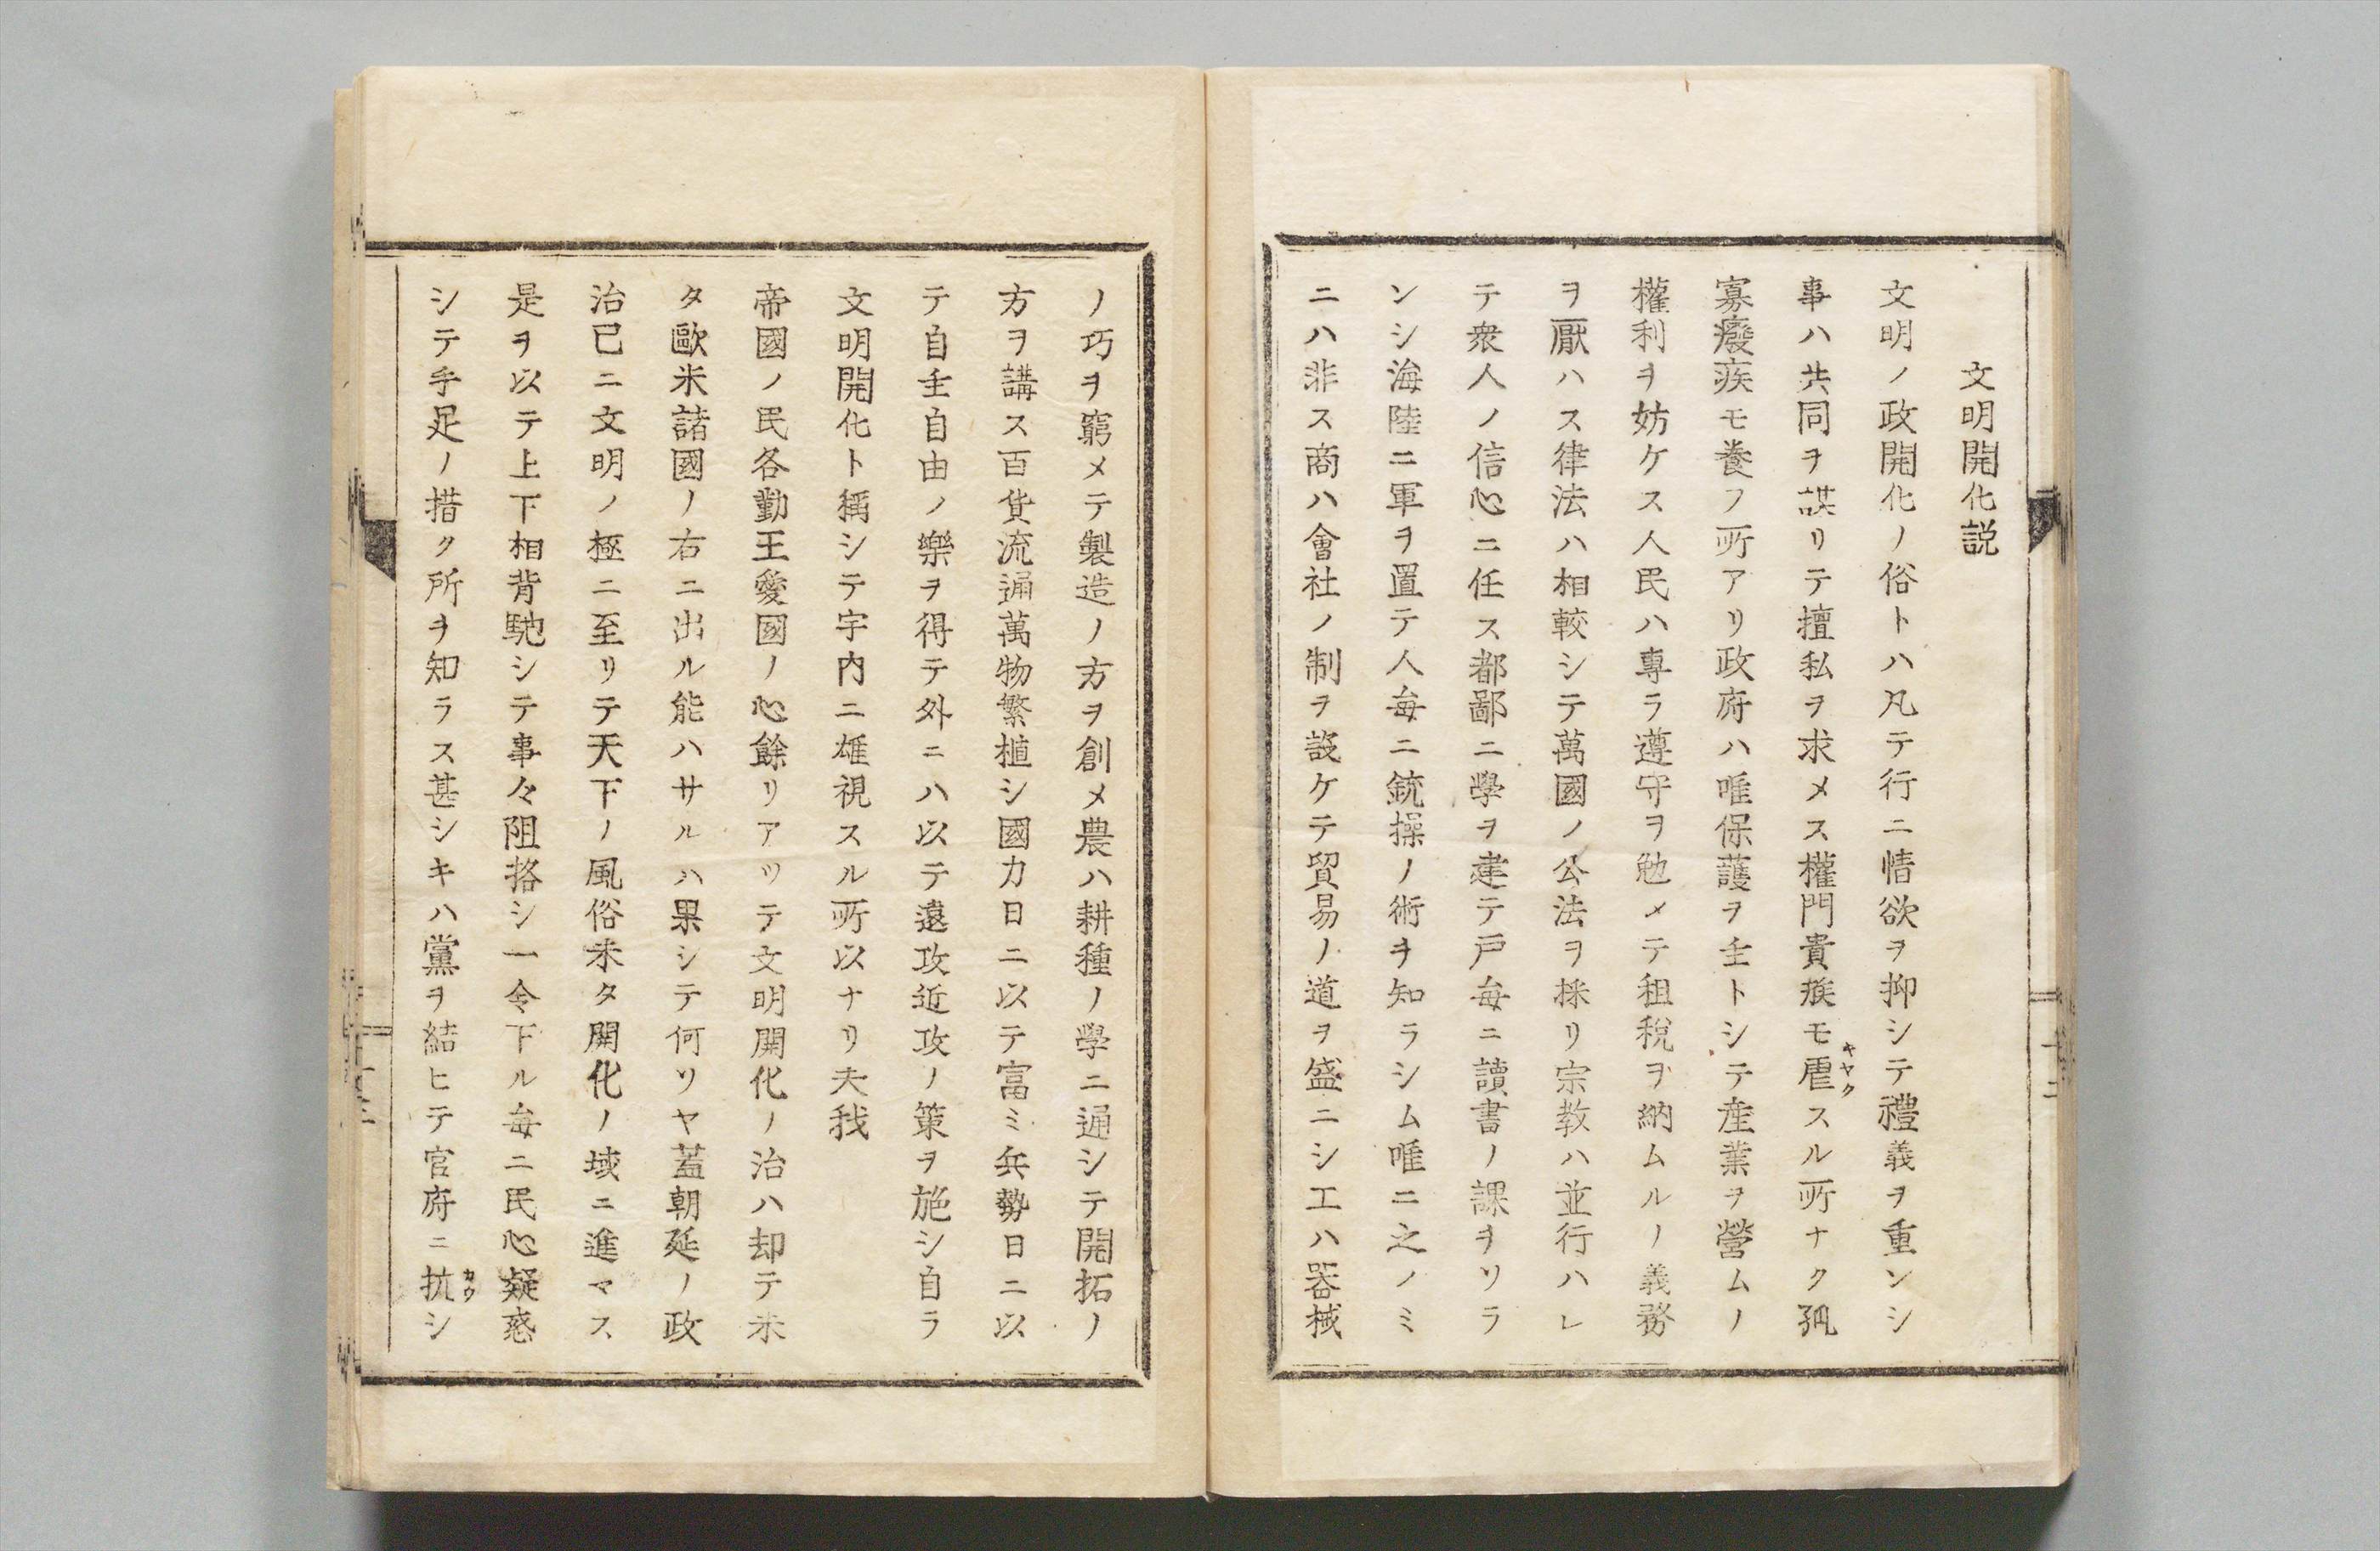 文明開化説
文明ノ政開化ノ俗トハ凡テ行ニ情欲ヲ抑シテ禮義ヲ重ンシ
事ハ共同ヲ謀リテ擅私ヲ求メス權門貴族モ虐スル所ナク孤
キヤク
寡癈疾モ養フ所アリ政府ハ唯保護ヲ主トシテ産業ヲ營ムノ
權利ヲ妨ケス人民ハ專ラ遵守ヲ勉メテ租税ヲ納ムルノ義務
ヲ厭ハス律法ハ相較シテ萬國ノ公法ヲ採リ宗教ハ並行ハレ
テ衆人ノ信心ニ任ス都鄙ニ學ヲ建テ戸毎ニ讀書ノ課ヲソラ
ンシ海陸ニ軍ヲ置テ人毎ニ銃操ノ術ヲ知ラシム唯ニ之ノミ
ニハ非ス商ハ會社ノ制ヲ設ケテ貿易ノ道ヲ盛ニシ工ハ器械
ノ巧ヲ窮メテ製造ノ方ヲ創メ農ハ耕種ノ學ニ通シテ開拓ノ
方ヲ講ス百貨流通萬物繁植シ國力日ニ以テ富ミ兵勢日ニ以
テ自主自由ノ樂ヲ得テ外ニハ以テ遠攻近攻ノ策ヲ施シ自ラ
文明開化ト稱シテ宇内ニ雄視スル所以ナリ夫我
帝國ノ民各勤王愛國ノ心餘リアツテ文明開化ノ治ハ却テ未
タ歐米諸國ノ右ニ出ル能ハサルハ果シテ何ソヤ蓋朝廷ノ政
治已ニ文明ノ極ニ至リテ天下ノ風俗未タ開化ノ域ニ進マス
是ヲ以テ上下相背馳シテ事々阻挌シ一令下ル毎ニ民心疑惑
シテ手足ノ措ク所ヲ知ラス甚シキハ黨ヲ結ヒテ官府ニ抗シ
カウ